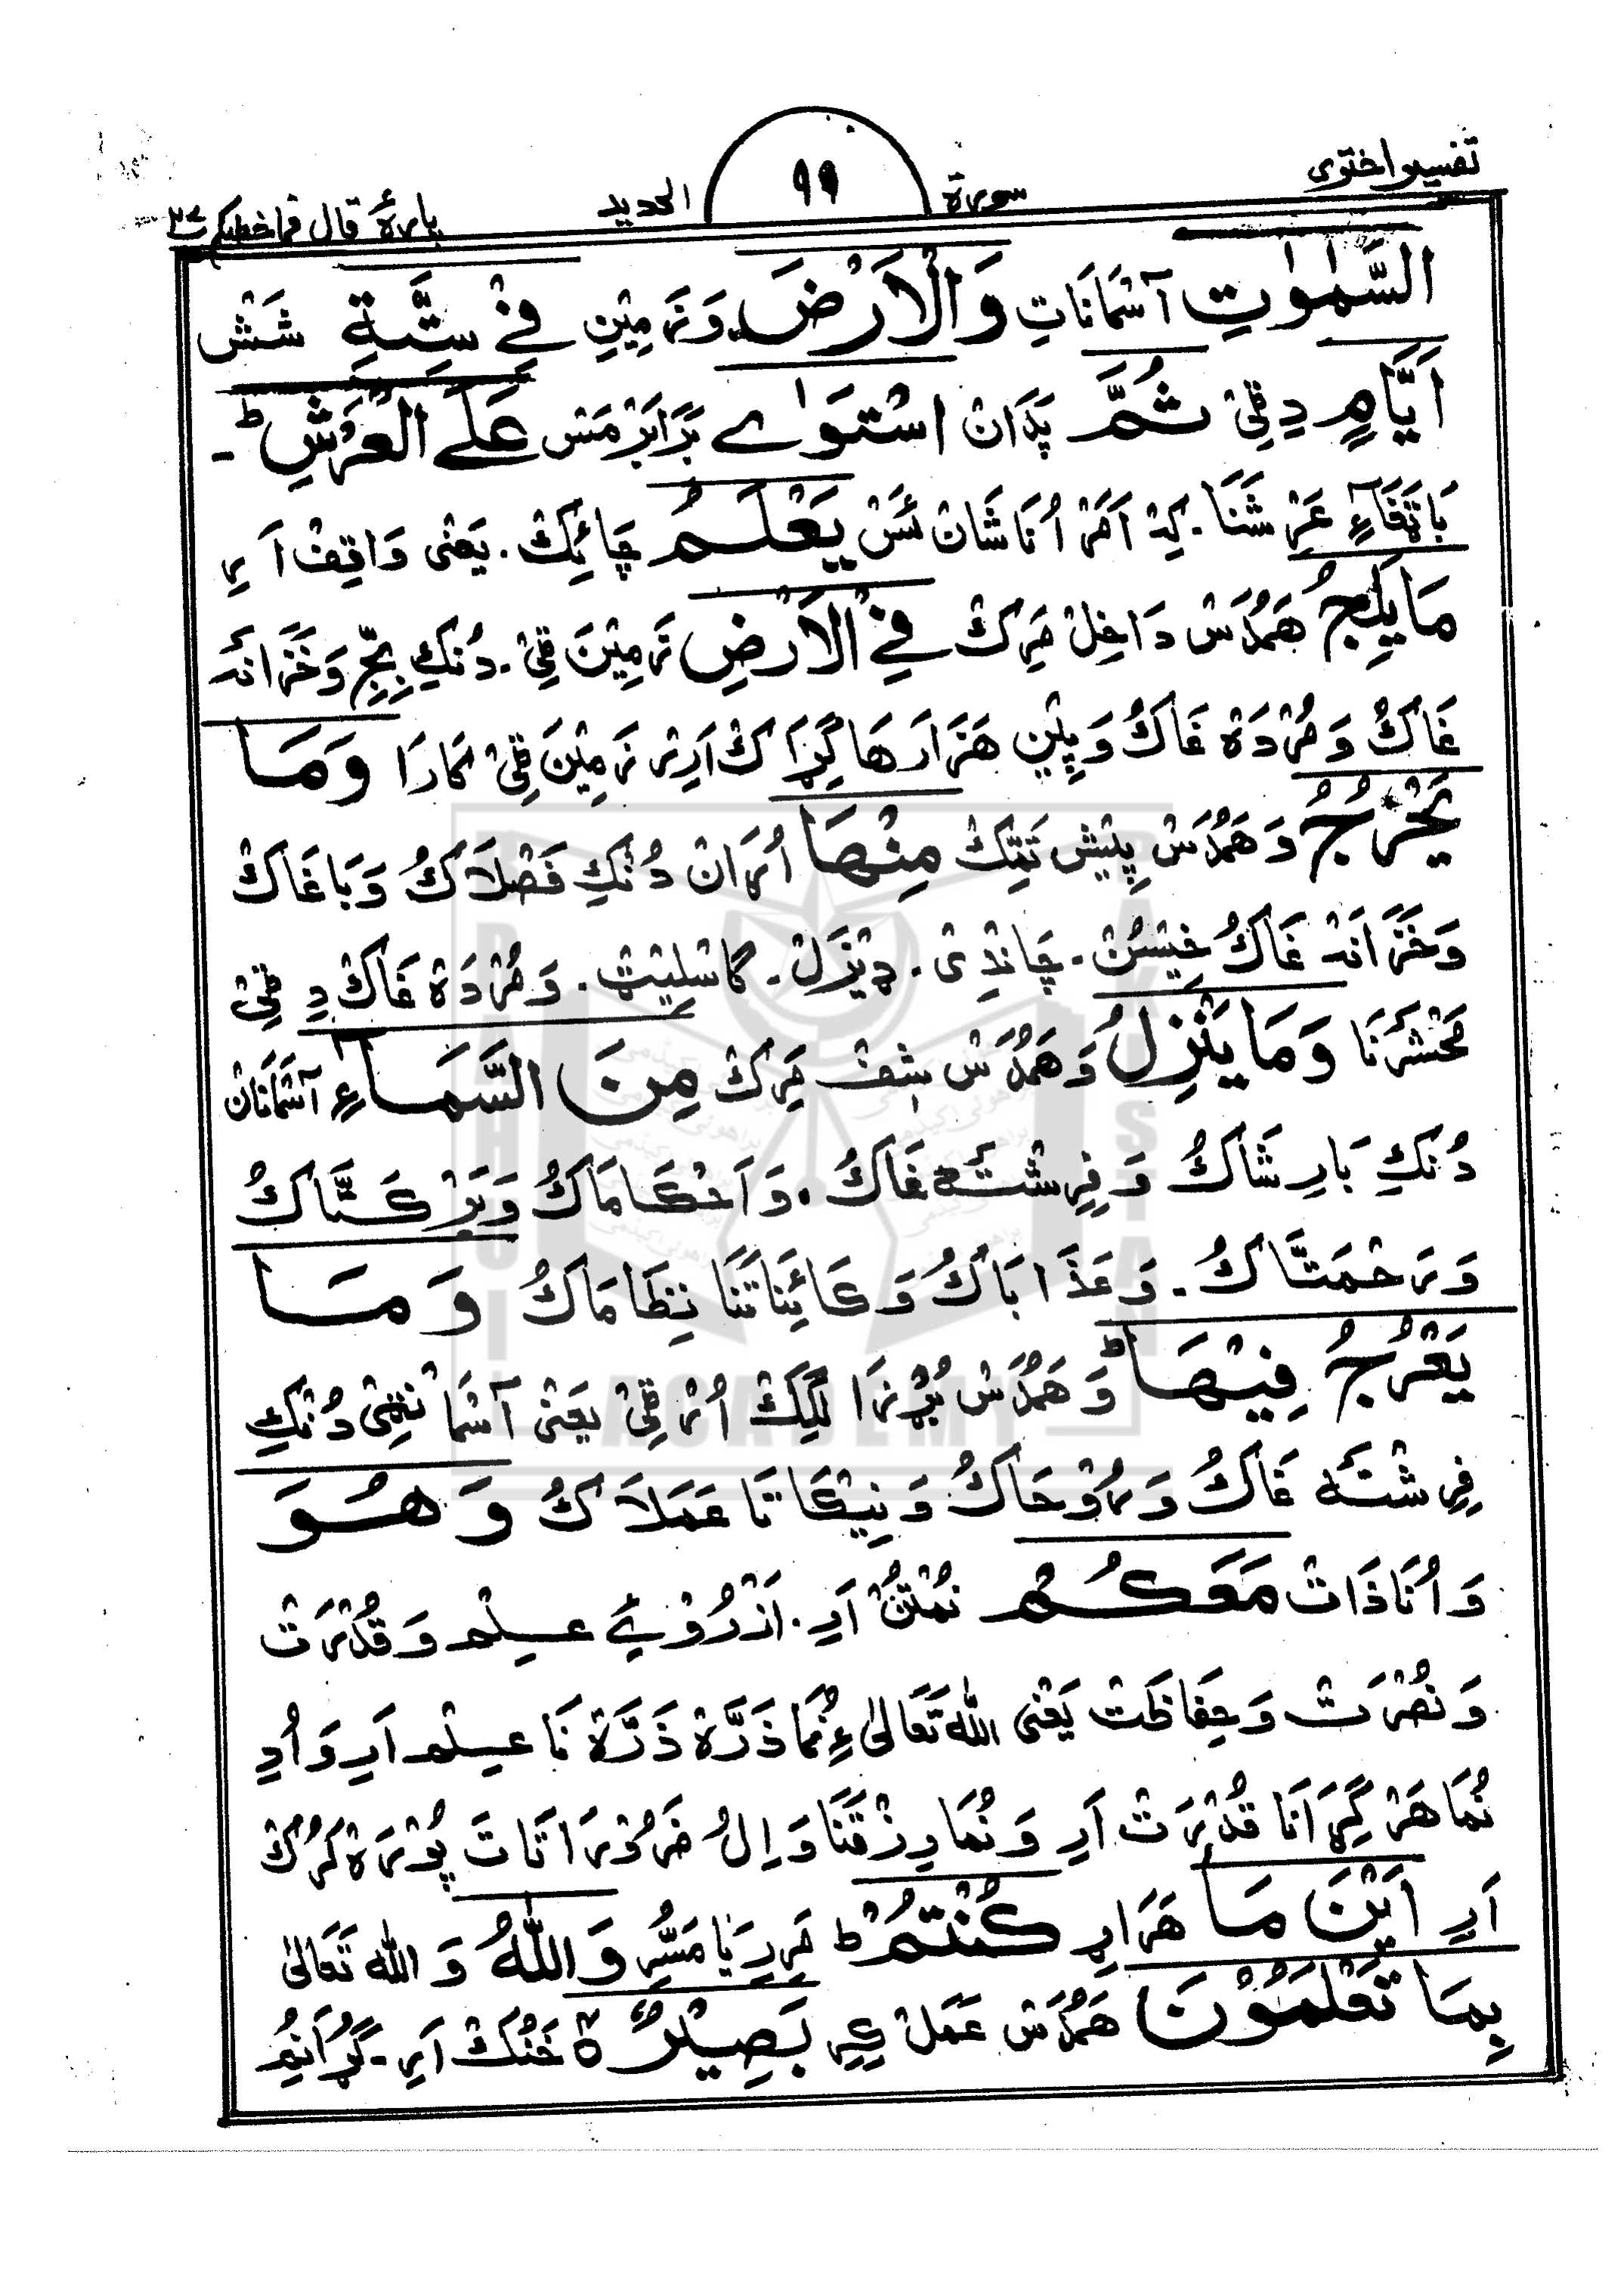 تفسیر اختری
سورة ۹۹ الحدید
پارۀ قال فما خطبکم ۲۷
السَّمٰوٰتِ آسْمَانَاتِ وَالْاَرْضَ وَزَمِیْنِ فِیْ سِتَّةِ شَشْ
اَیَّامٍ دِ ٹِیْ ثُمَّ پَدَانْ اسْتَوٰے بَرَابَرْ مَسْ عَلَے الْعَرْشِ ؕ ۔
بَاتِّفَاءِ عَرْشَنَا۔ کِہْ اَمَرْ اُنَا شَانْ ئَسْ یَعْلَمُ چَائِکْ۔ یَعْنٰی وَاقِفْ اَرِ
مَا یَلِجُ هَمُدَسْ دَاخِلْ مَرِکْ فِے الْاَرْضِ زَمِیْنَ ٹِیْ۔ دُنْکِ بِجِّ وَخَزَانَہ
غَاکْ وَمُرْدَہْ غَاکُ وَ پِیْنِ هَزَارَهَا گِڑَاکْ اَرِرْ زَمِیْنَ ٹِیْ نَمَارَا وَمَا
یَخْرُجُ وَهَمُدَسْ پِیْشْ تَمِّکْ مِنْهَا اُرَانْ دُنْکِ فَصْلَاکُ وَبَاغَاکْ
وَخَزَانَہْ غَاکُ خِیْسُنْ۔ چَانْدِیْ۔ ڈِیْزَلْ۔ گَاسْلِیْٹْ۔ وَمُرْدَہْ غَاکْ دِ ٹِیْ
مَحْشَرْنَا وَمَا یَنْزِلُ وَهَمُدَسْ شِفْ مَرِکْ مِنَ السَّمَاءِ آسْمَانَانْ
دُنْکِ بَارِشَاکُ وَفِرِشْتَہ غَاکُ۔ وَاَحْکَامَاکُ وَبَرْکَتَّاکُ
وَرَحْمَتَّاکُ۔ وَعَذَابَاکُ وَکَائِنَاتَنَا نِظَامَاکُ وَمَا
یَعْرُجُ فِیْهَا ؕ وَهَمُدَسْ بُرْزَا لَگِّکْ اُرْٹِیْ یَعْنٰی آسْمَانَٹِیْ دُنْکِ
فِرِشْتَہ غَاکُ وَرُوْحَاکُ وَنِیْکَاتَا عَمَلَاکُ وَهُوَ
وَاُنَا ذَاتْ مَعَکُمْ نُمْتُنْ اَرِ۔ اَزْ رُوْئے عِلْم وَقُدْرَتْ
وَنُصْرَتْ وَحِفَاظَتْ یَعْنٰی اللّٰه تَعَالٰی ءِ نُمَا ذَرَّہْ ذَرَّہْ نَا عِلْم اَرِ وَاُدِ
نُمَا هَرْ گِڑَانَا قُدْرَتْ اَرِ وَنُمَا رِزْقَنَا وَاِلُ ضَرُوْرَاتَاتَ پُوْرَہْ کَرُکْ
اَرِ اَیْنَ مَا هَرَارِ کُنْتُمْ ؕ مَرِرِ یَا مَسُّرِ وَاللّٰهُ وَ اللّٰه تَعَالٰی
بِمَا تَعْمَلُوْنَ هَمُدَسْ عَمَلْ کِرِ بَصِیْرٌ ۝ خَنُکْ اَرِ۔ گُڑَانُمْ